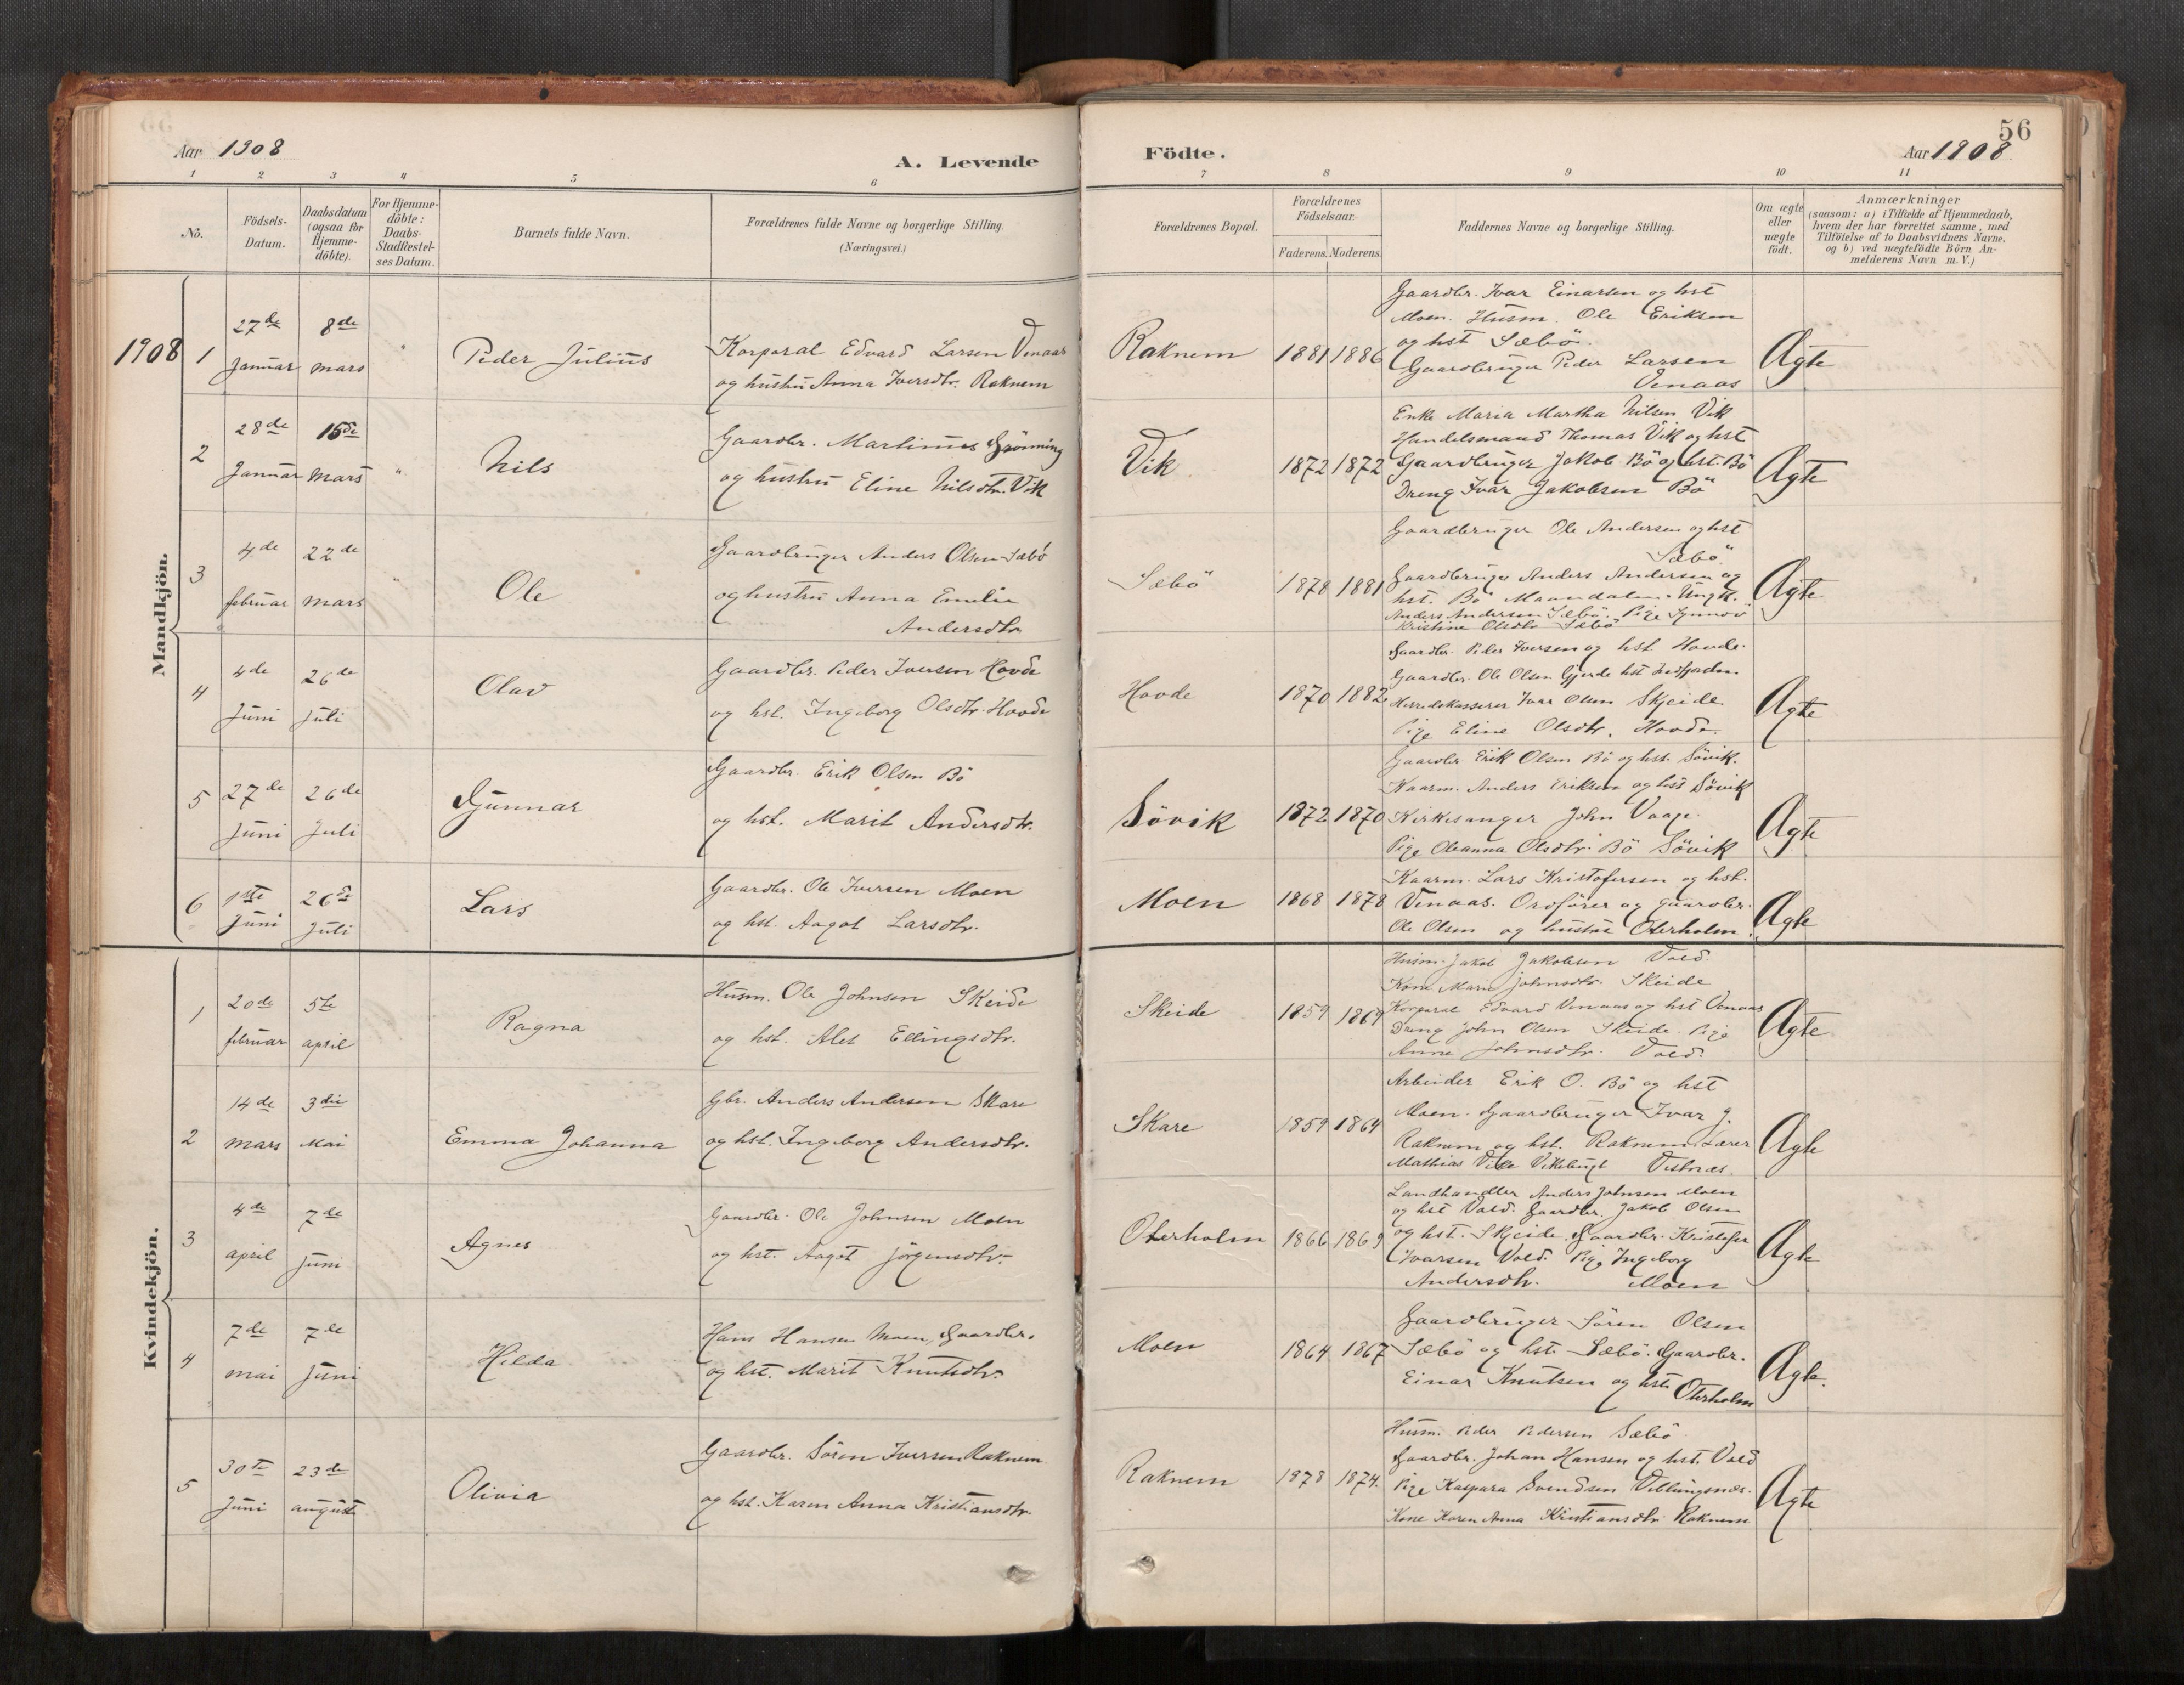 56
Aar 1908
A. Levende
Födte.
Aar 1908
1 2 3 4 5 6 7 8 9 10 11
No.
Födsels-
Datum.
Daabsdatum
(ogsaa for
Hjemme-
döbte).
For Hjemme-
döbte:
Daabs-
Stadfæstel-
ses Datum.
Barnets fulde Navn.
Forældrenes fulde Navne og borgerlige Stilling.
(Næringsvei.)
Forældrenes Bopæl.
Forældrenes
Födselsaar.
Faderens. Moderens.
Faddernes Navne og borgerlige Stilling.
Om ægte
eller
uægte
födt.
Anmærkninger
(saasom: a) i Tilfælde af Hjemmedaab,
hvem der har forrettet samme, med
Tilföielse af to Daabsvidners Navne,
og b) ved uægtefödte Börn An-
melderens Navn m. V.)
Mandkjön.
1908
1
27de
Januar
8de
mars
"
Peder Julius
Korporal Edvard Larsen Venaas
og hustru Anna Iversdtr. Raknem
Raknem
1881 1886
Gaardbr. Ivar Einarsen og hst
Moen. Husm. Ole Eriksen
og hst Sæbö.
Gaardbruger Peder Larsen
Venaas
Ægte
2
28de
Januar
15de
Mars
"
Nils
Gaardbr. Martinus Grönning
og hustru Eline Nilsdtr. Vik
Vik
1872 1872
Enke Maria Martha Nilsen Vik
Handelsmand Thomas Vik og hst
Gaardbruger Jakob Bö og hst. Bö
Dreng Ivar Jakobsen Bö
Ægte
3
4de
februar
22de
Mars
"
Ole
Gaardbruger Anders Olsen Sæbö
og hustru Anna Emelie
Andersdtr
Sæbö
1878 1881
Gaardbruger Ole Andersen og hst
Sæbö.
Gaardbruger Anders Andersen og
hst. Bö Maandalen. Ungk.
Anders Andersen Sæbö. Pige Synnöv
Kristine Olsdtr Sæbö
Ægte
4
4de
Juni
26de
Juli
Olav
Gaardbr. Peder Iversen Hovde
og hst. Ingeborg Olsdtr. Hovde
Hovde
1870 1882
Gaardbr. Peder Iversen og hst Hovde.
Gaardbr. Ole Olsen Gjerde hst Indfjorden
Herredskasserer Ivar Olsen Skjeide
Pige Eline Olsdtr. Hovde.
Ægte
5
27de
Juni
26de
Juli
Gunnar
Gaardbr. Erik Olsen Bö
og hst. Marit Andersdtr.
Sövik
1872 1870
Gaardbr Erik Olsen Bö og hst. Sövik.
Kaarm. Anders Eriksen og hst Sövik
Kirkesanger John Vaage.
Pige Oleanna Olsdtr. Bö Sövik
Ægte
6
1ste
Juni
26de
Juli
Lars
Gaardbr. Ole Iversen Moen
og hst. Aagot Larsdtr.
Moen
1868 1878
Kaarm. Lars Kristofersen og hst.
Venaas. Ordförer og gaardbr.
Ole Olsen og hustru Oterholm.
Ægte
Kvindekjön.
1
20de
februar
5te
april
Ragna
Husm. Ole Johnsen Skeide
og hst. Ales Ellingsdtr.
Skeide
1859 1869
Husm. Jakob Jakobsen Vold.
Kone Marie Johnsdtr. Skeide
Korporal Edvard Venaas og hst Venaas
Dreng John Olsen Skeide. Pige
Anne Johnsdtr. Vold.
Ægte
2
14de
mars
3die
Mai
Emma Johanna
Gbr. Anders Andersen Skare
og hst. Ingeborg Andersdtr.
Skare
1859 1864
Arbeider Erik O. Bö og hst
Moen. Gaardbruger Ivar J.
Raknem og hst. Raknem. Lærer
Mathias Vike Vikebugt Vestnes.
Ægte
3
4de
april
7de
juni
Agnes
Gaardbr. Ole Johnsen Moen
og hst. Aagot Jörgensdtr.
Oterholm
1866 1869
Landhandler Anders Johnsen Moen
og hst Vold. Gaardbr. Jakob Olsen
og hst. Skjeide. Gaardbr. Kristofer
Ivarsen Vold. Pige Ingeborg
Andersdtr. Moen
Ægte
4
7de
mai
7de
Juni
Hilda
Hans Hansen Moen, Gaardbr.
og hst. Marit Knutsdtr.
Moen
1864 1867
Gaardbruger Sören Olsen
Sæbö og hst. Sæbö. Gaardbr.
Einar Knutsen og hst. Oterholm
Ægte.
5
30te
Juni
23de
august
Olivia
Gaardbr. Sören Iversen Raknem
og hst. Karen Anna Kristiansdtr.
Raknem
1878 1874.
Husm. Peder Pedersen Sæbö.
Gaardbr. Johan Hansen og hst. Vold
Pige Kaspara Svendsen Veblungsnes.
Kone Karen Anna Kristiansdtr Raknem
Ægte